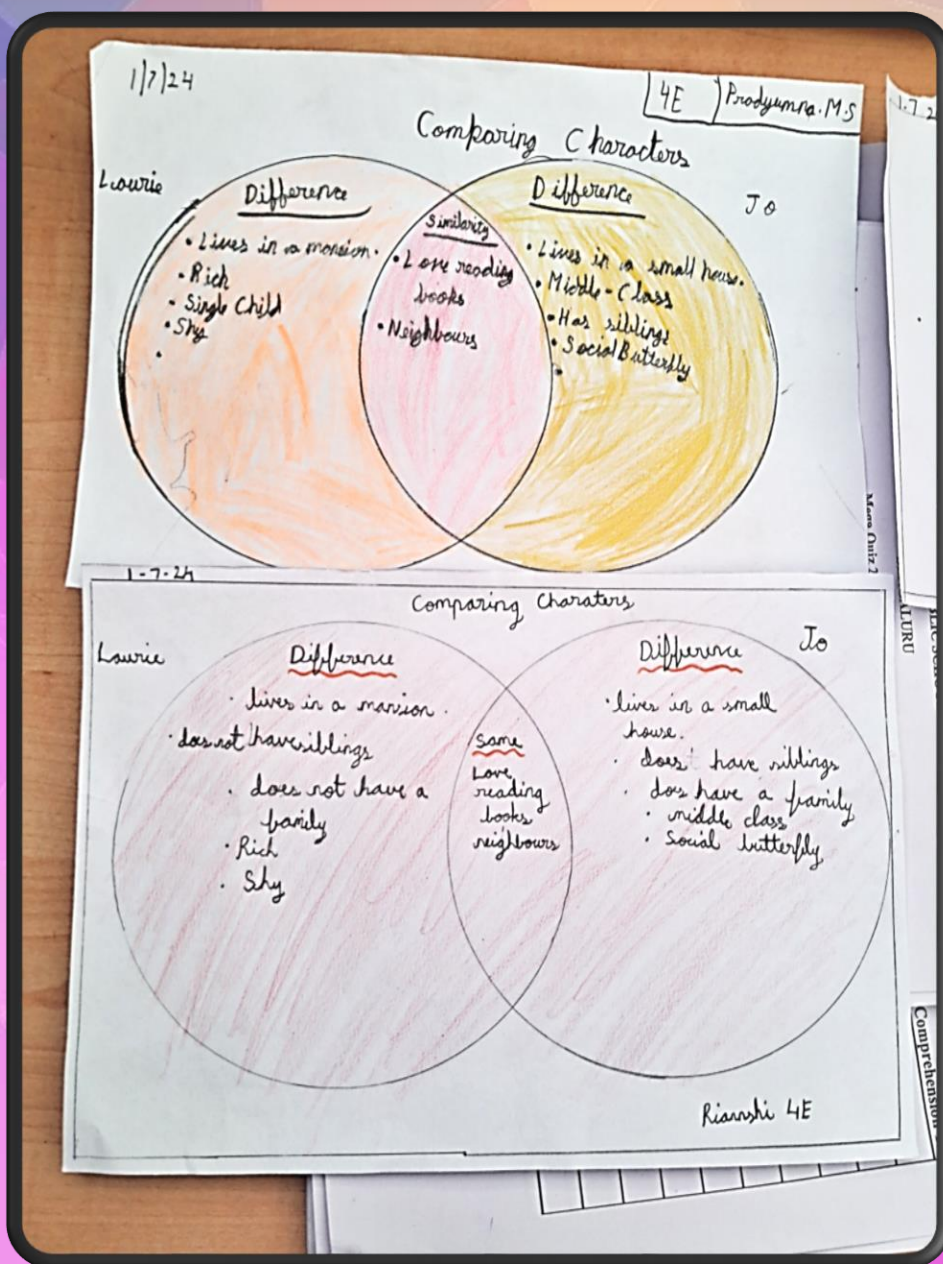 1/7/24
4E Pradyumna.M.S
Comparing Characters
Laurie
Difference
• Lives in a mansion.
• Rich
- Single Child
• Shy
•
Similarity
• Love reading
books
• Neighbours
Jo
Difference
• Lives in a small house.
• Middle-Class
• Has siblings
• Social Butterfly
•
1-7-24
Comparing Charaters
Laurie
Difference
• lives in a mansion.
• does not have siblings
• does not have a
family
• Rich
• Shy
Same
Love
reading
books
neighbours
Jo
Difference
• lives in a small
house.
• does have siblings
• does have a family
• middle class
• Social butterfly
Riannshi 4E
1.7.2
Mega Quiz 2
ALURU
Comprehension